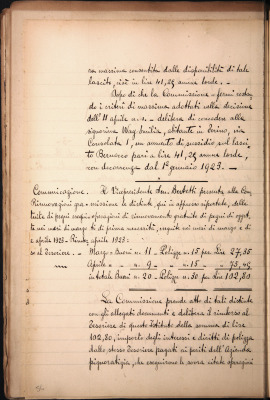 ra massima consentita dalle disponibilità di tale
lascito, cioè in lire 41,25 annue lorde.
Dopo di che la Commissione - fermi restan-
do i criteri di massima adottati nella decisione
dell'11 aprile a.c. - delibera di concedere alla
signorina Emilia, abitante in Torino, via
Consolata 1, un aumento di sussidio sul lasci-
to pari a lire 41,25 annue lorde,
con decorrenza dal 1° gennaio 1923.
Comunicazione. Il Vicepresidente Berletti presenta alla Com-
Rinnovazioni gra- missione le distinte, qui in appresso riportate, delle
tuite di pegni operazioni di rinnovamento gratuito di pegni di
nei mesi di marzo di prima necessità, seguite nei mesi di marzo e di
e aprile 1923 - Rimbor- aprile 1923:
so al Tesoriere. - Marzo - Buoni n. 11 - Polizze n. 15 per Lire 27,35
Aprile - " n. 9 - " n. 15 - " 75,45
in totale Buoni n. 20 - Polizze n. 30 per Lire 102,80
La Commissione prende atto di tali distinte
con gli allegati documenti e delibera il rimborso al
Tesoriere di questo Istituto della somma di lire
102,80, importo degli interessi e diritti di polizza
dallo stesso Tesoriere pagati ai periti dell'Azienda
pignoratizia, che eseguirono le sovra citate operazioni